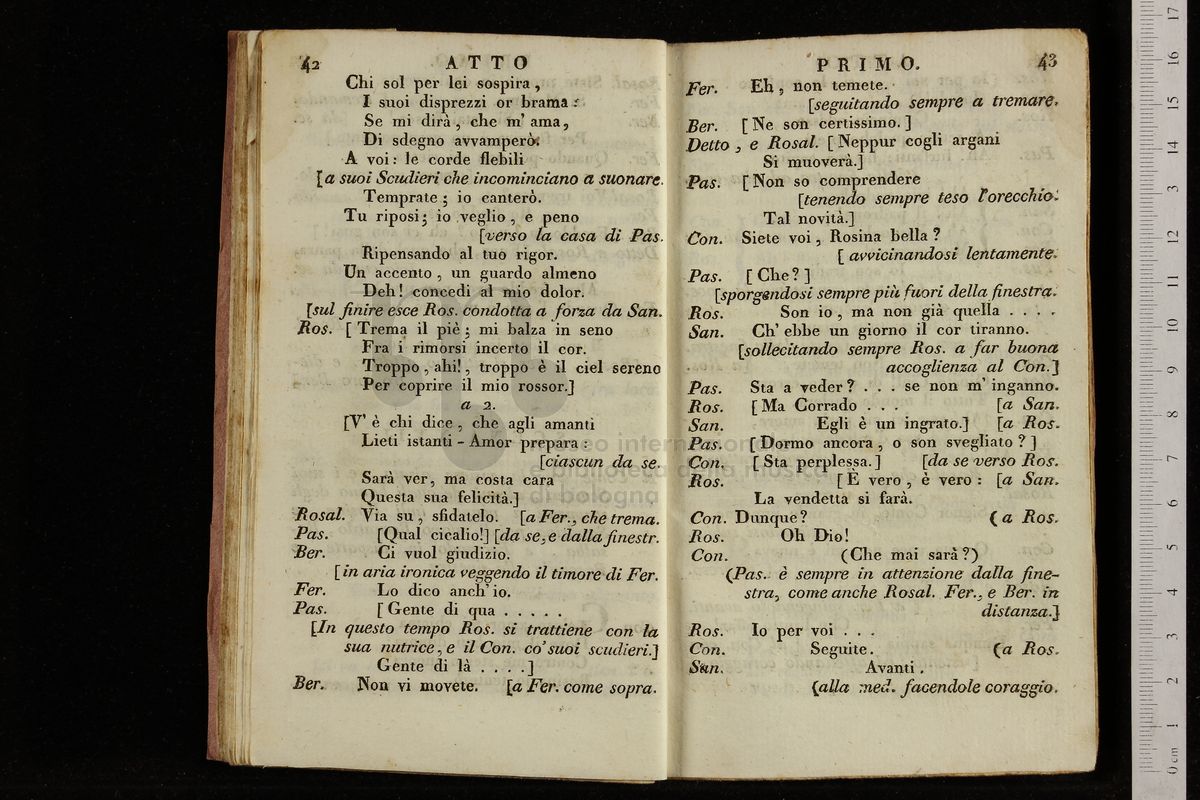 42 ATTO
Chi sol per lei sospira,
I suoi disprezzi or brama:
Se mi dirà, che m' ama,
Di sdegno avvamperò.
A voi: le corde flebili
[a suoi Scudieri che incominciano a suonare.
Temprate; io canterò.
Tu riposi; io veglio, e peno
[verso la casa di Pas.
Ripensando al tuo rigor.
Un accento, un guardo almeno
Deh! concedi al mio dolor.
[sul finire esce Ros. condotta a forza da San.
Ros. [Trema il piè; mi balza in seno
Fra i rimorsi incerto il cor.
Troppo, ahi!, troppo è il ciel sereno
Per coprire il mio rossor.]
a 2.
[V' è chi dice, che agli amanti
Lieti istanti - Amor prepara:
[ciascun da se.
Sarà ver, ma costa cara
Questa sua felicità.]
Rosal. Via su, sfidatelo. [a Fer., che trema.
Pas. [Qual cicalio!] [da se, e dalla finestr.
Ber. Ci vuol giudizio.
[in aria ironica veggendo il timore di Fer.
Fer. Lo dico anch' io.
Pas. [Gente di qua . . . . .
[In questo tempo Ros. si trattiene con la
sua nutrice, e il Con. co' suoi scudieri.]
Gente di là . . . .]
Ber. Non vi movete. [a Fer. come sopra.
PRIMO. 43
Fer. Eh, non temete.
[seguitando sempre a tremare.
Ber. [Ne son certissimo.]
Detto, e Rosal. [Neppur cogli argani
Si muoverà.]
Pas. [Non so comprendere
[tenendo sempre teso l'orecchio.
Tal novità.]
Con. Siete voi, Rosina bella?
[avvicinandosi lentamente.
Pas. [Che?]
[sporgendosi sempre più fuori della finestra.
Ros. Son io, ma non già quella . . . .
San. Ch' ebbe un giorno il cor tiranno.
[sollecitando sempre Ros. a far buona
accoglienza al Con.]
Pas. Sta a veder? . . . se non m' inganno.
Ros. [Ma Corrado . . . [a San.
San. Egli è un ingrato.] [a Ros.
Pas. [Dormo ancora, o son svegliato?]
Con. [Sta perplessa.] [da se verso Ros.
Ros. [È vero, è vero: [a San.
La vendetta si farà.
Con. Dunque? (a Ros.
Ros. Oh Dio!
Con. (Che mai sarà?)
(Pas. è sempre in attenzione dalla fine-
stra, come anche Rosal. Fer., e Ber. in
distanza.]
Ros. Io per voi . . .
Con. Seguite. (a Ros.
San. Avanti.
(alla med. facendole coraggio.
museo internazionale
e biblioteca della musica
di bologna
0 cm 1 2 3 4 5 6 7 8 9 10 11 12 13 14 15 16 17